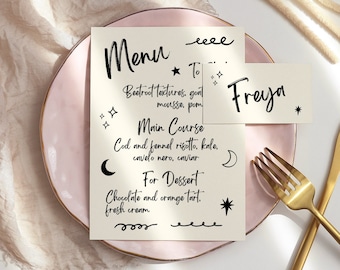 Menu
To
Beetroot textures, goat
mousse, pom
Freya
Main Course
Cod and fennel risotto, kale,
cavelo nero, caviar
For Dessert
Chocolate and orange tart,
fresh cream